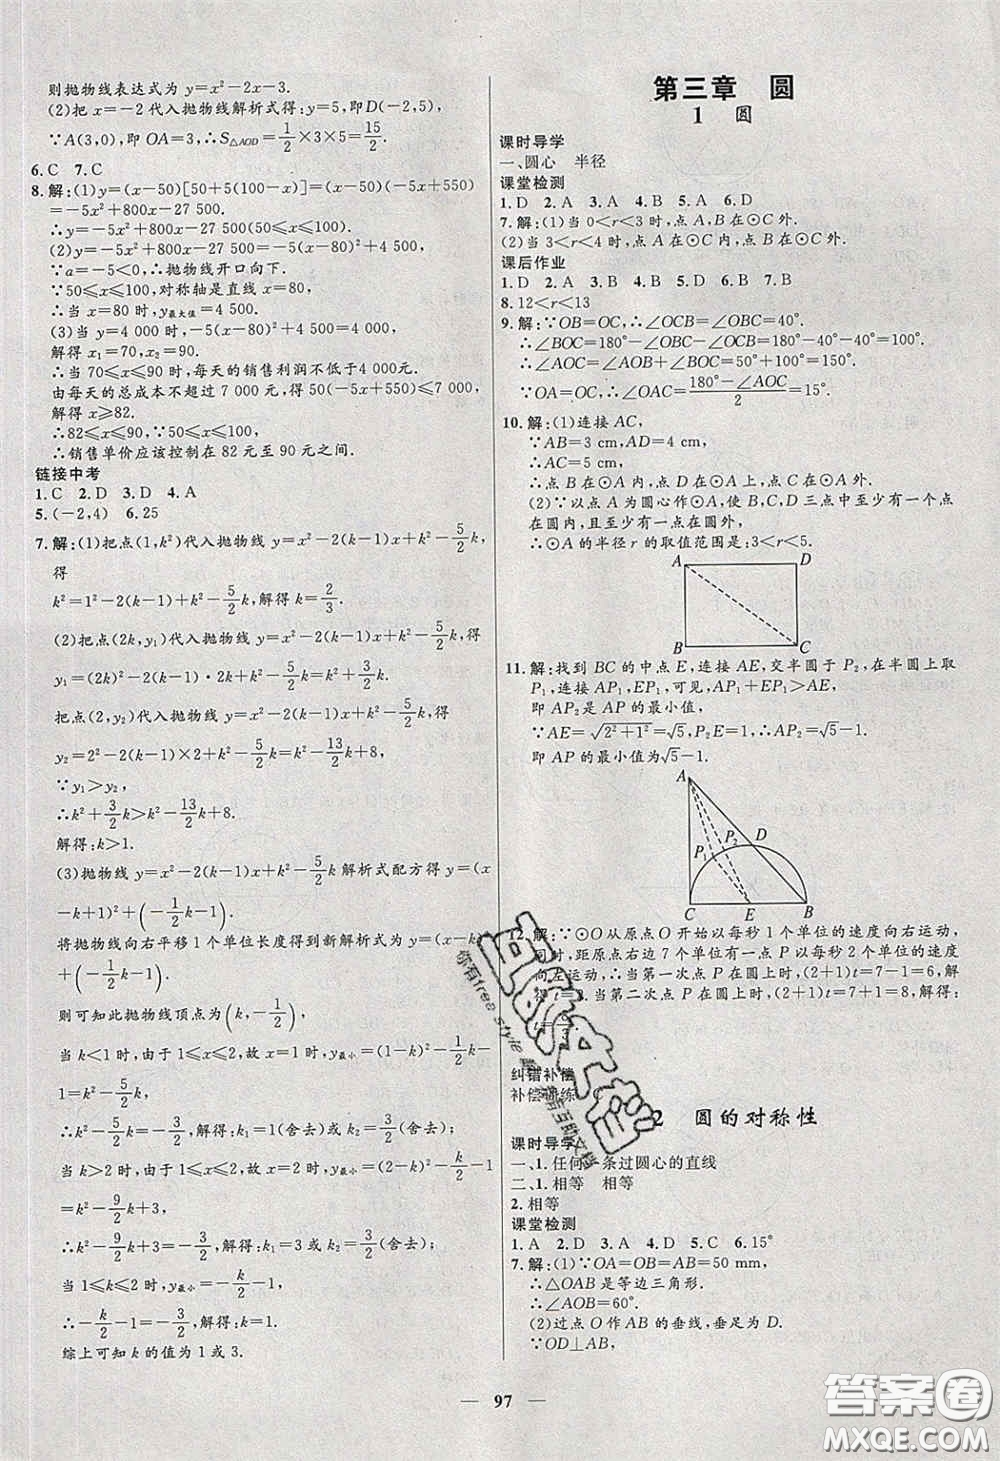 则抛物线表达式为 y=x²-2x-3.
(2)把 x=-2 代入抛物线解析式得:y=5,即D(-2,5),
∵A(3,0),即 OA=3,∴S△AOD=1/2×3×5=15/2.
6.C 7.C
8.解:(1)y=(x-50)[50+5(100-x)]=(x-50)(-5x+550)
=-5x²+800x-27 500.
∴y=-5x²+800x-27 500(50≤x≤100).
(2)y=-5x²+800x-27 500=-5(x-80)²+4 500.
∵a=-5<0,∴抛物线开口向下.
∵50≤x≤100,对称轴是直线 x=80,
∴当 x=80 时,y最大值=4 500.
(3)当 y=4 000 时,-5(x-80)²+4 500=4 000,
解得 x₁=70,x₂=90.
∴当 70≤x≤90 时,每天的销售利润不低于4 000元.
由每天的总成本不超过 7 000 元,得50(-5x+550)≤7 000,
解得 x≥82.
∴82≤x≤90,∵50≤x≤100,
∴销售单价应该控制在 82 元至 90 元之间.
链接中考
1.C 2.D 3.D 4.A
5.(-2,4) 6.25
7.解:(1)把点(1,k²)代入抛物线 y=x²-2(k-1)x+k²-5/2k,
得
k²=1²-2(k-1)+k²-5/2k,解得 k=2/3.
(2)把点(2k,y₁)代入抛物线 y=x²-2(k-1)x+k²-5/2k,得
y₁=(2k)²-2(k-1)·2k+k²-5/2k=k²+3/2k,
把点(2,y₂)代入抛物线 y=x²-2(k-1)x+k²-5/2k,得
y₂=2²-2(k-1)×2+k²-5/2k=k²-13/2k+8,
∵y₁>y₂,
∴k²+3/2k>k²-13/2k+8.
解得:k>1.
(3)抛物线 y=x²-2(k-1)x+k²-5/2k 解析式配方得 y=(x
-k+1)²+(-1/2k-1).
将抛物线向右平移 1 个单位长度得到新解析式为 y=(x-k)²
+(-1/2k-1).
则可知此抛物线顶点为(k,-1/2k-1),
当 k<1 时,由于 1≤x≤2,故 x=1 时,y最小=(1-k)²-1/2k-
1=k²-5/2k,
∴k²-5/2k=-3/2,解得:k₁=1(舍去),k₂=3/2(舍去);
当 k>2 时,由于 1≤x≤2,故 x=2 时,y最小=(2-k)²-k/2-1
=k²-9/2k+3,
∴k²-9/2k+3=-3/2,解得:k₁=3 或 k₂=3/2(舍去);
当 1≤k≤2 时,y最小=-k/2-1,
∴-k/2-1=-3/2,解得:k=1.
综上可知 k 的值为 1 或 3.
第三章 圆
1 圆
课时导学
一、圆心 半径
课堂检测
1.D 2.A 3.A 4.B 5.A 6.D
7.解:(1)当 0<r<3 时,点 A、B 在⊙C 外.
(2)当 3<r<4 时,点 A 在⊙C 内,点 B 在⊙C 外.
课后作业
1.D 2.A 3.B 4.B 5.B 6.D 7.B
8.12<r<13
9.解:∵OB=OC,∴∠OCB=∠OBC=40°.
∴∠BOC=180°-∠OBC-∠OCB=180°-40°-40°=100°.
∴∠AOC=∠AOB+∠BOC=50°+100°=150°.
∵OA=OC,∴∠OAC=180°-∠AOC/2=15°.
10.解:(1)连接 AC,
∵AB=3 cm,AD=4 cm,
∴AC=5 cm,
∴点 B 在⊙A 内,点 D 在⊙A 上,点 C 在⊙A 外.
(2)∵以点 A 为圆心作⊙A,使 B、C、D 三点中至少有一个点
在圆内,且至少有一点在圆外,
∴⊙A 的半径 r 的取值范围是:3<r<5.
A D
B C
11.解:找到 BC 的中点 E,连接 AE,交半圆于 P₂,在半圆上取
P₁,连接 AP₁,EP₁,可见,AP₁+EP₁>AE,
即 AP₂ 是 AP 的最小值,
∵AE=√2²+1²=√5,P₂E=1,∴AP₂=√5-1.
即 AP 的最小值为√5-1.
A
D
P₁ P₂
C E B
12.解:∵⊙O 从原点 O 开始以每秒 1 个单位的速度向右运动,
同时,距原点右边 7 个单位有一点 P 以每秒 2 个单位的速度
向左运动,∴当第一次点 P 在圆上时,(2+1)t=7-1=6,解
得 t=2.当第二次点 P 在圆上时,(2+1)t=7+1=8,解得:
t=
纠错补偿
补偿训练
2 圆的对称性
课时导学
一、1.任何一条过圆心的直线
二、1.相等 相等
2.相等
课堂检测
1.A 2.D 3.A 4.D 5.C 6.15°
7.解:(1)∵OA=OB=AB=50 mm,
∴△OAB 是等边三角形.
∴∠AOB=60°.
(2)过点 O 作 AB 的垂线,垂足为 D.
∵OD⊥AB,
— 97 —
答案圈
MXQE.COM